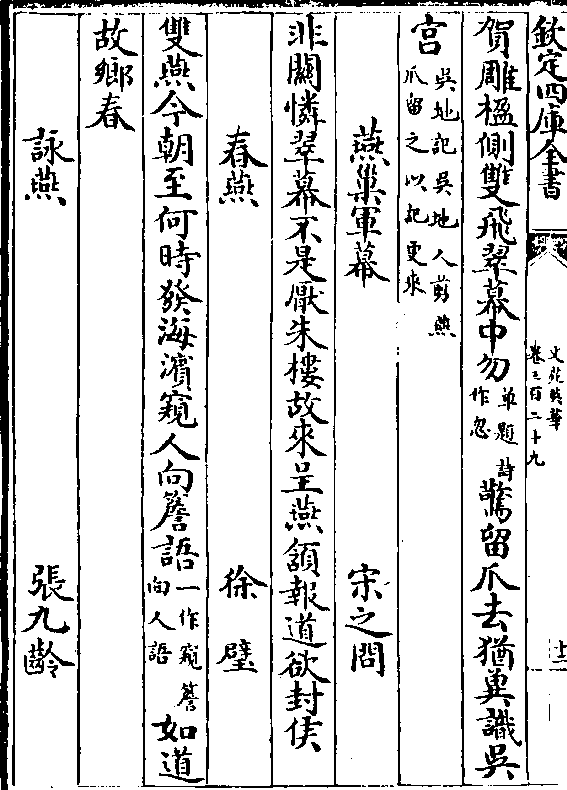 欽定四庫全書
文苑英華
卷三百二十九
十二
賀雕楹側雙飛翠幕中勿單題詩作忽驚留爪去猶冀識吳
宮吳地記吳地人剪燕爪留之以記更來
燕巢軍幕 宋之問
非關憐翠幕不是厭朱樓故來呈燕頷報道欲封侯
春燕 徐璧
雙燕今朝至何時發海濱窺人向簷語一作窺簷向人語如道
故鄉春
詠燕 張九齡